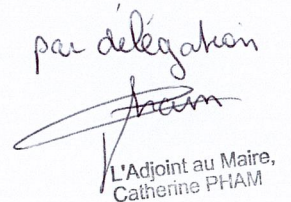 par délégation
Pham
L'Adjoint au Maire,
Catherine PHAM